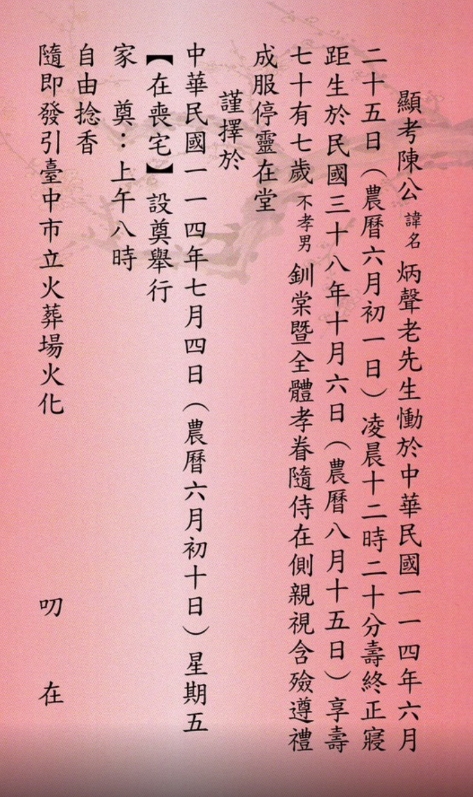 顯考陳公諱名炳聲老先生慟於中華民國一一四年六月
二十五日（農曆六月初一日）凌晨十二時二十分壽終正寢
距生於民國三十八年十月六日（農曆八月十五日）享壽
七十有七歲不孝男釧棠暨全體孝眷隨侍在側親視含殮遵禮
成服停靈在堂
謹擇於
中華民國一一四年七月四日（農曆六月初十日）星期五
【在喪宅】設奠舉行
家奠：上午八時
自由捻香
隨即發引臺中市立火葬場火化　叨在